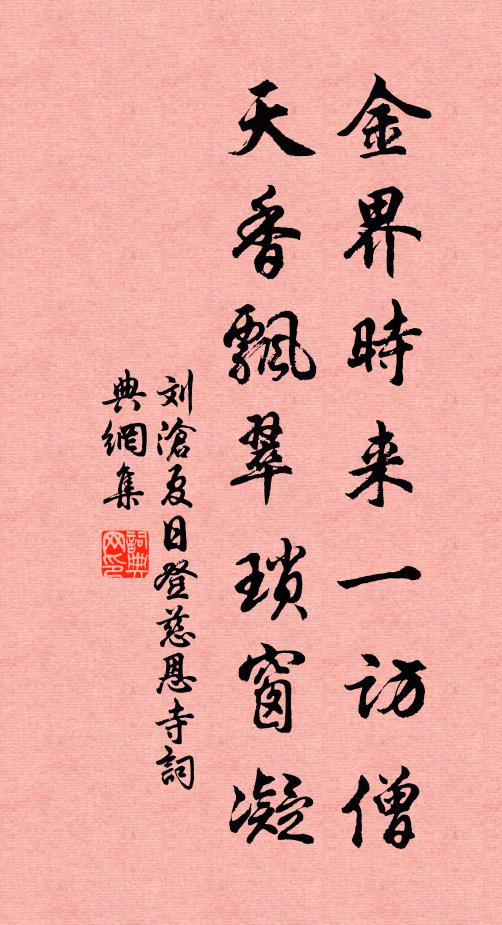 金界時来一访僧
天香飄翠瑣窗凝
刘滄夏日登慈恩寺詞
典網集
詞典网印